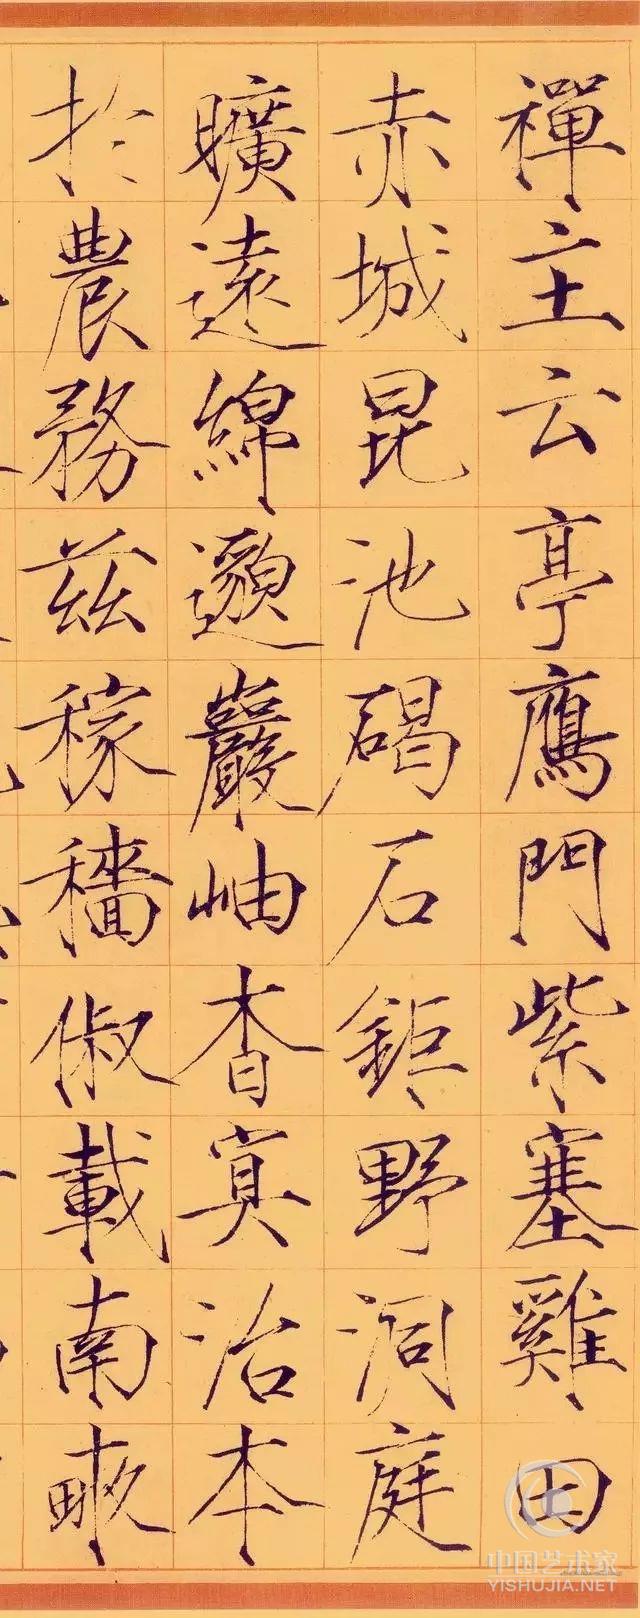 禪主云亭鴈門紫塞雞田
赤城昆池碣石鉅野洞庭
曠遠綿邈巖岫杳冥治本
於農務茲稼穡俶載南畝
中国艺术家
YISHUJIA.NET